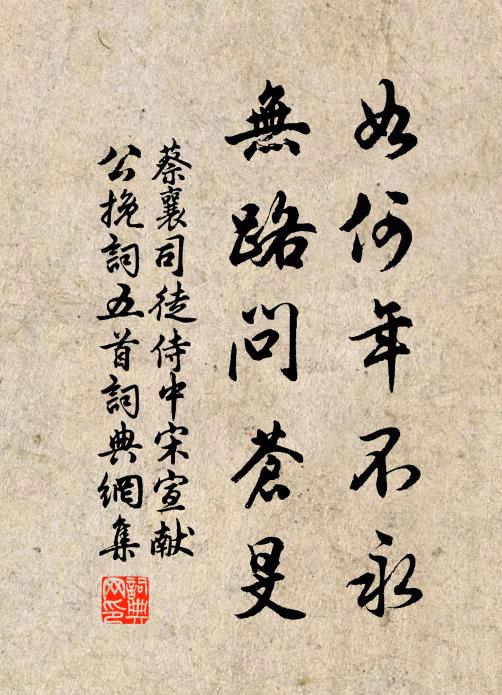 如何年不永
無路問蒼旻
蔡襄司徒侍中宋宣献
公挽詞五首詞典網集
詞典網印